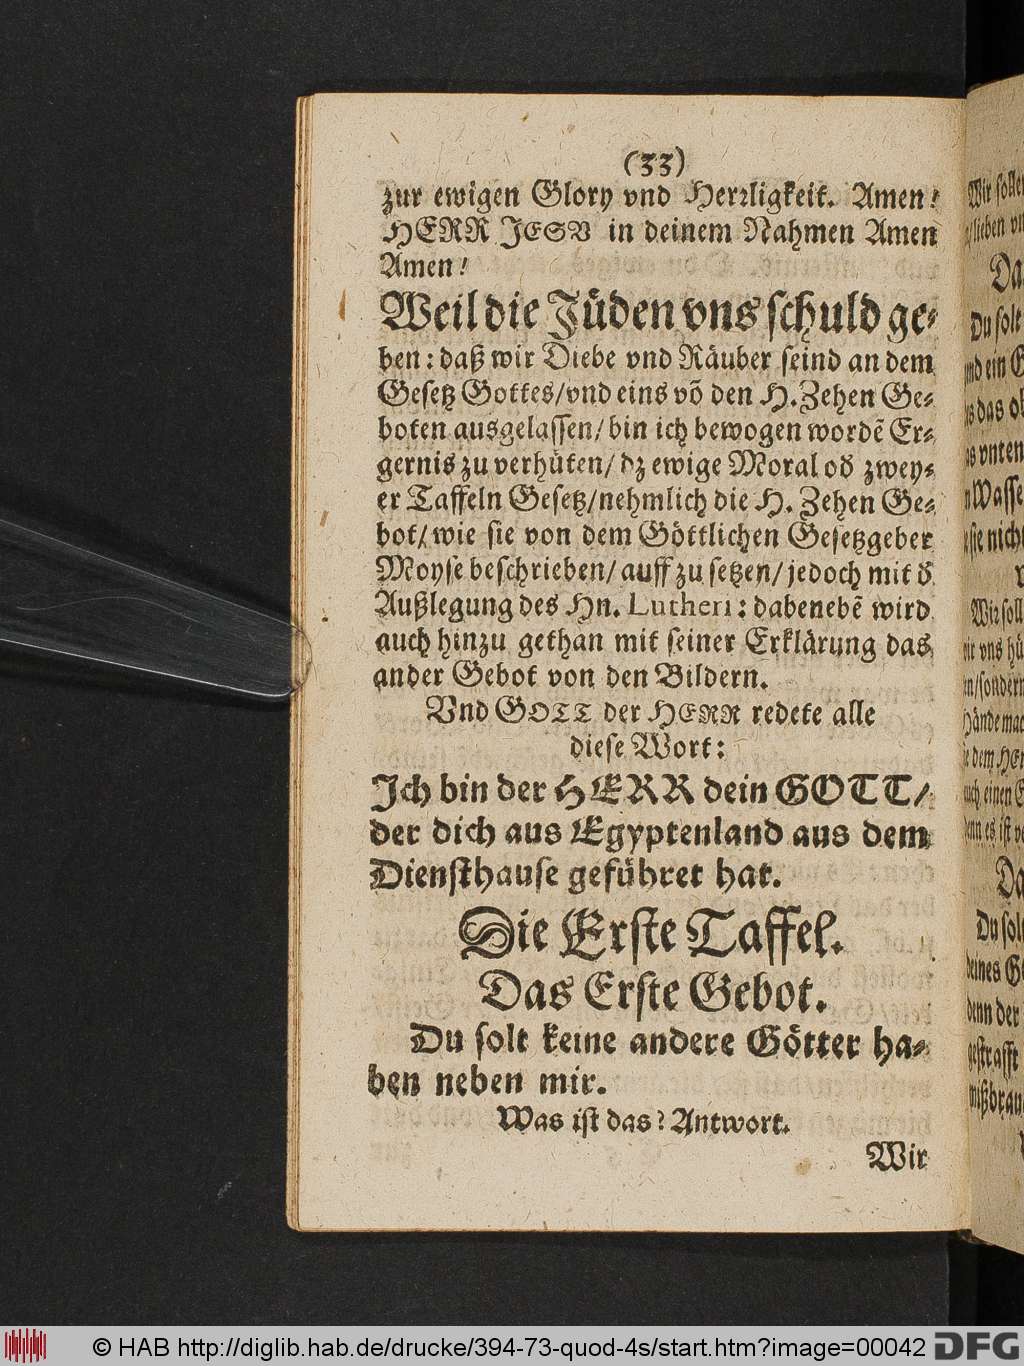 (33)
zur ewigen Glory vnd Herrligkeit. Amen!
HERR JESV in deinem Nahmen Amen
Amen!
Weil die Jüden vns schuld ge-
ben: daß wir Diebe vnd Räuber seind an dem
Gesetz Gottes/vnd eins võ den H. Zehen Ge-
boten ausgelassen/ bin ich bewogen wordẽ Er-
gernis zu verhüten/ dz ewige Moral od zwey-
er Taffeln Gesetz/nehmlich die H. Zehen Ge-
bot/ wie sie von dem Göttlichen Gesetzgeber
Moyse beschrieben/ auff zu setzen/ jedoch mit d
Außlegung des Hn. Lutheri: dabenebẽ wird
auch hinzu gethan mit seiner Erklärung das
ander Gebot von den Bildern.
Vnd GOTT der HERR redete alle
diese Wort:
Ich bin der HERR dein GOTT/
der dich aus Egyptenland aus dem
Diensthause geführet hat.
Die Erste Taffel.
Das Erste Gebot.
Du solt keine andere Götter ha-
ben neben mir.
Was ist das? Antwort.
Wir
© HAB http://diglib.hab.de/drucke/394-73-quod-4s/start.htm?image=00042
DFG